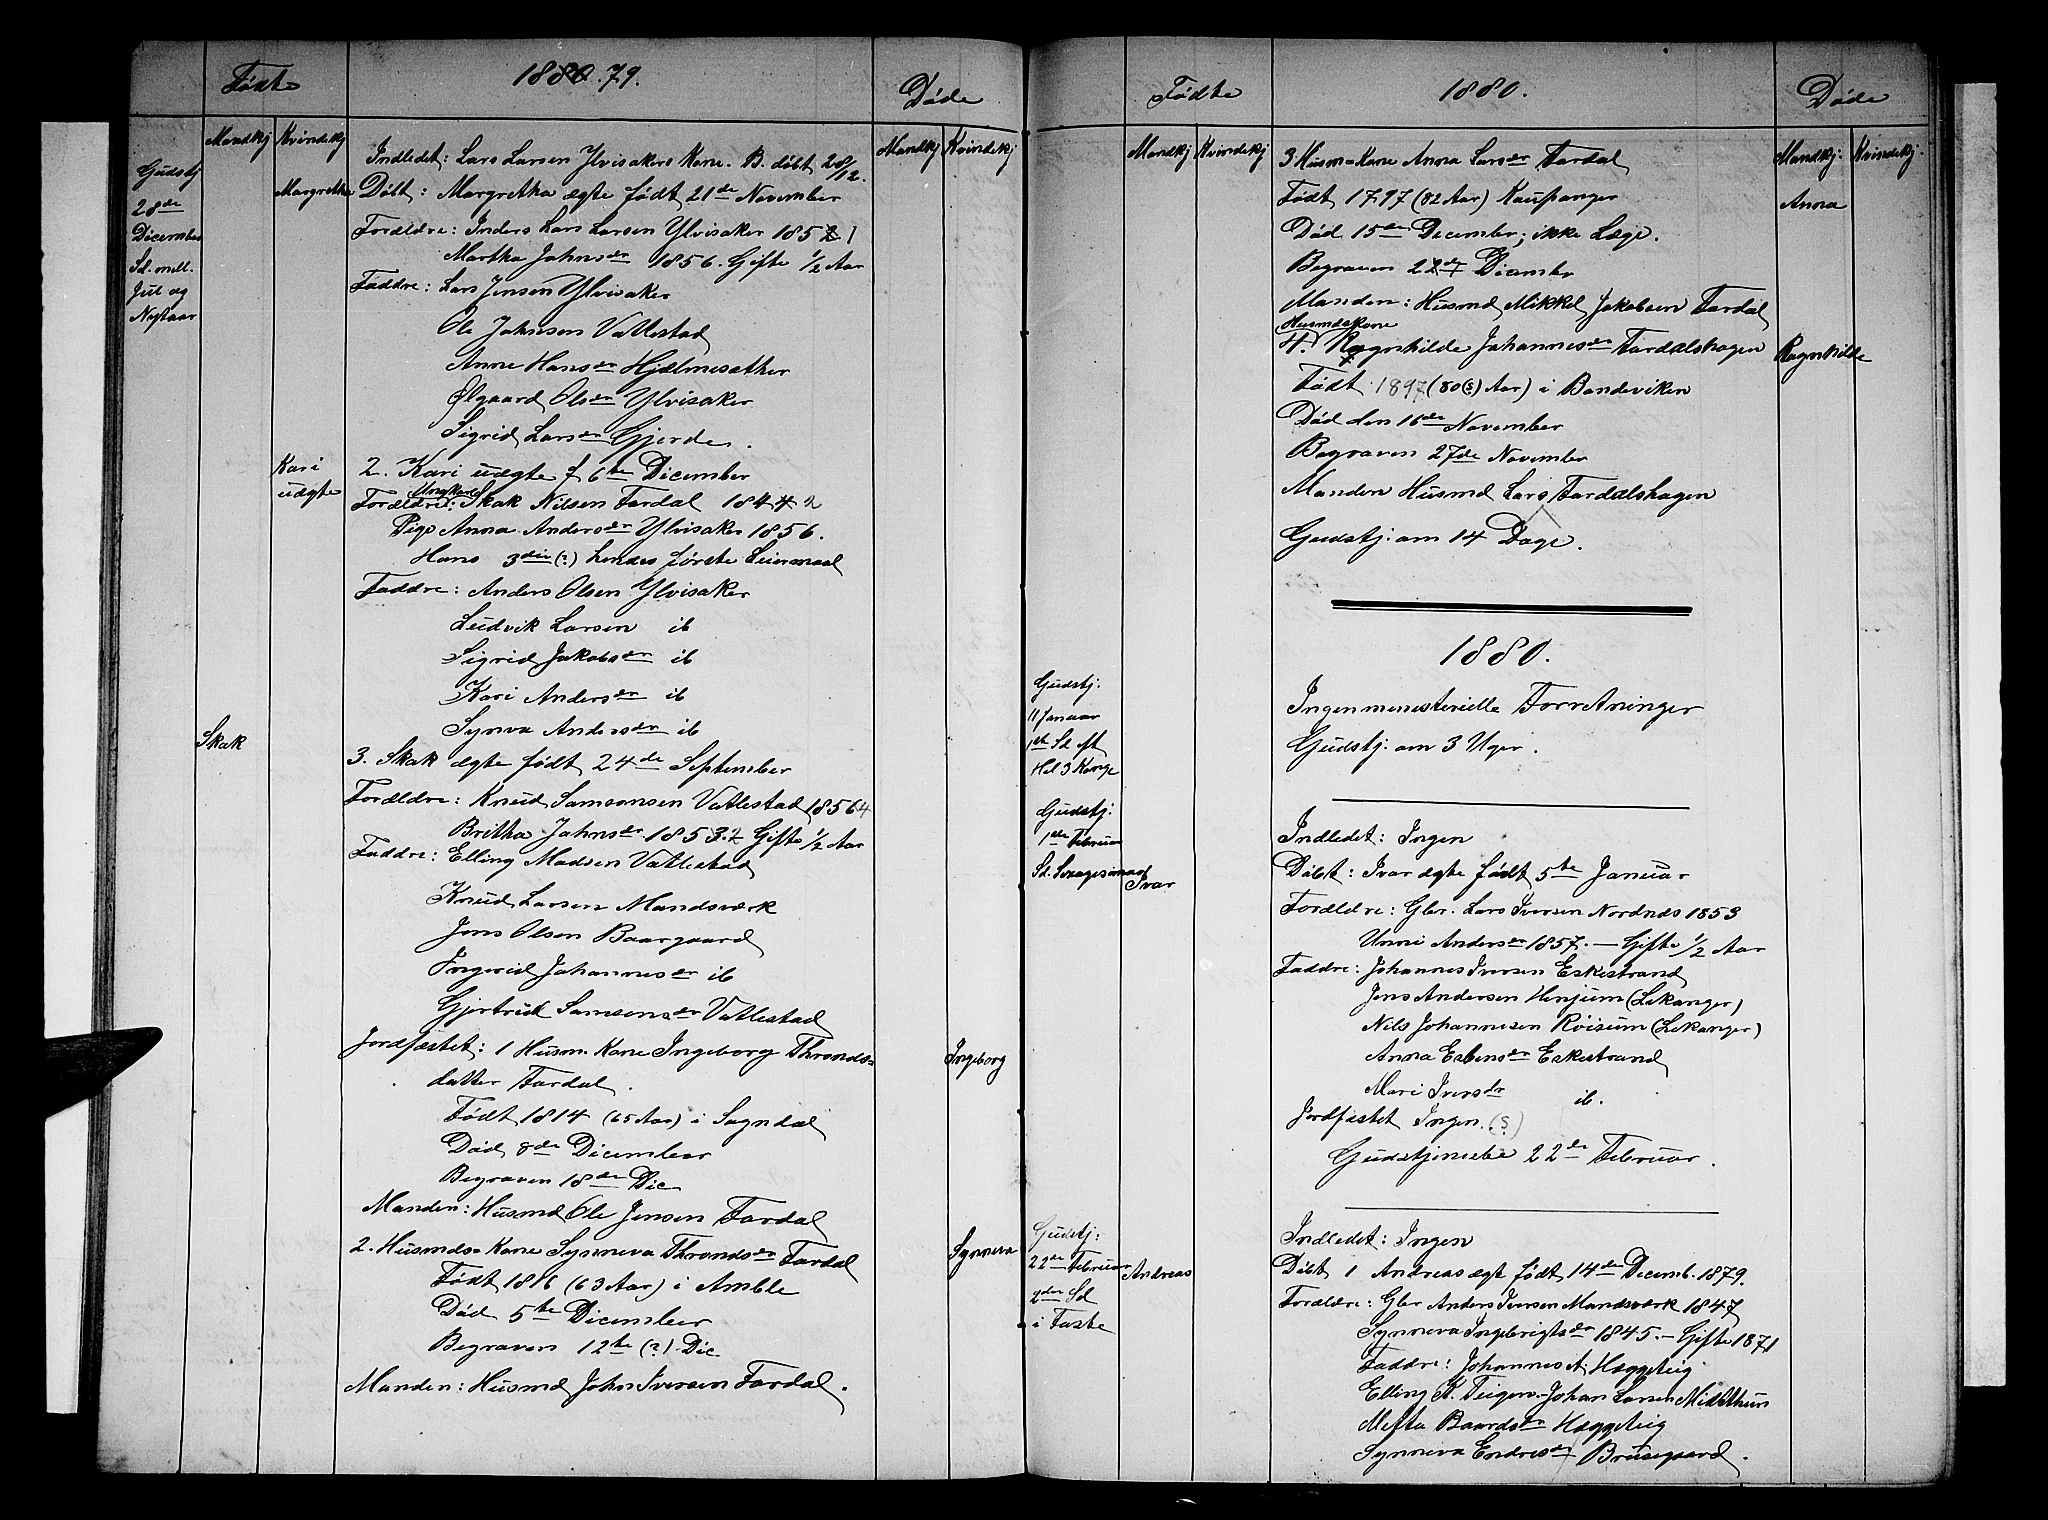 Født
1880.79.
Døde
Mandkj Kvindekj
Mandkj Kvindekj
Gudstj
28de
Dicember
Sd. mell.
Jul og
Nytaar
Margretha
Indledet: Lars Larsen Ylvisakers Kone. B. døbt 28/12.
Døbt: Margretha ægte født 21de November
Forældre: Inders Lars Larsen Ylvisaker 1852 1
Martha Johnsdr 1856. Gifte 1/2 Aar
Faddre: Lars Jensen Ylvisaker
Ole Johnsen Vatlestad
Anne Hansdr Hjælmesæther
Ølgaard Olsdr Ylvisaker
Sigrid Larsdr Gjerde.
Kari
uægte
2. Kari uægte f 6te Dicember
Ungkarl
Forældre: Skak Nilsen Fardal 1844 2
Pige Anna Andersdr Ylvisaker 1856.
Hans 3die (?) hendes første Leiermaal
Faddre: Anders Olsen Ylvisaker
Ludvik Larsen ib
Sigrid Jakobsdr ib
Kari Andersdr ib
Synva Andersdr ib
Skak
3. Skak ægte født 24de September
Forældre: Knud Samsonsen Vatlestad 1856 4
Britha Johnsdr 1853.2 Gifte 1/2 Aar
Faddre: Elling Madsen Vatlestad
Knud Larsen Mandsværk
Jens Olsen Baargaard
Ingerid Johannesdr ib
Gjertrud Samsonsdr Vatlestad
Jordfæstet: 1 Husm. Kone Ingeborg Thronds=
datter Fardal.
Ingeborg
Født 1814 (65 Aar) i Sogndal
Død 8de Dicember
Begraven 18de Dic
Manden: Husmd Ole Jensen Fardal
2. Husmds-Kone Synneva Throndsdr Fardal
Synneva
Født 1816 (63 Aar) i Amble
Død 5te Dicember
Begraven 12te (?) Dic
Manden: Husmd John Iversen Fardal.
Fødte
1880.
Døde
Mandkj Kvindekj
Mandkj: Kvindekj.
3 Husm-Kone Anna Larsdr Fardal
Født 1797 (82 Aar) Kaupanger
Anna
Død 15de December; ikke Læge.
Begraven 22de Dicembr
Manden: Husmd Mikkel Jakobsen Fardal
Husmdskone
4. Ragnhilde Johannesdr Fardalshagen
Ragnhilde
Født 1897 (80(s) Aar) i Bondeviken
Død den 16de November
Begraven 27de November
Manden Husmd Lars Fardalshagen
Gudstj. om 14 Dage.
1880.
Gudstj.
11 Januar
1ste Sd eft
Hel 3 Konge
Ingen menesterielle Forretninger
Gudstj. om 3 Uger.
Gudstj:
1ste Februar
Sd. Sexagesima
Ivar
Indledet: Ingen
Døbt: Ivar ægte født 5te Januar
Forældre: Gbr. Lars Iversen Nordnæs 1853
Unni Andersdr 1857. - Gifte 1/2 Aar
Faddre: Johannes Iversen Eskestrand
Jens Andersen Henjum (Lekanger)
Nils Johannesen Røisum (Lekanger)
Anna Esbensdr Eskestrand
Mari Iversdr ib.
Jordfæstet Ingen. (s)
Gudstjeneste 22de Februar.
Gudstj:
22de Februar
2den Sd
i Faste
Andreas
Indledet: Ingen
Døbt 1 Andreas ægt født 14de Decemb. 1879.
Forældre: Gbr Anders Iversen Mandsværk 1847
Synneva Ingebrigtsdr 1845. - Gifte 1871
Faddre: Johannes A. Hæggeteig
Elling K. Teigen. - Johan Larsen Midthun
Metta Baardsdr Hæggeteig
Synneva Endresdr Brusegaard.